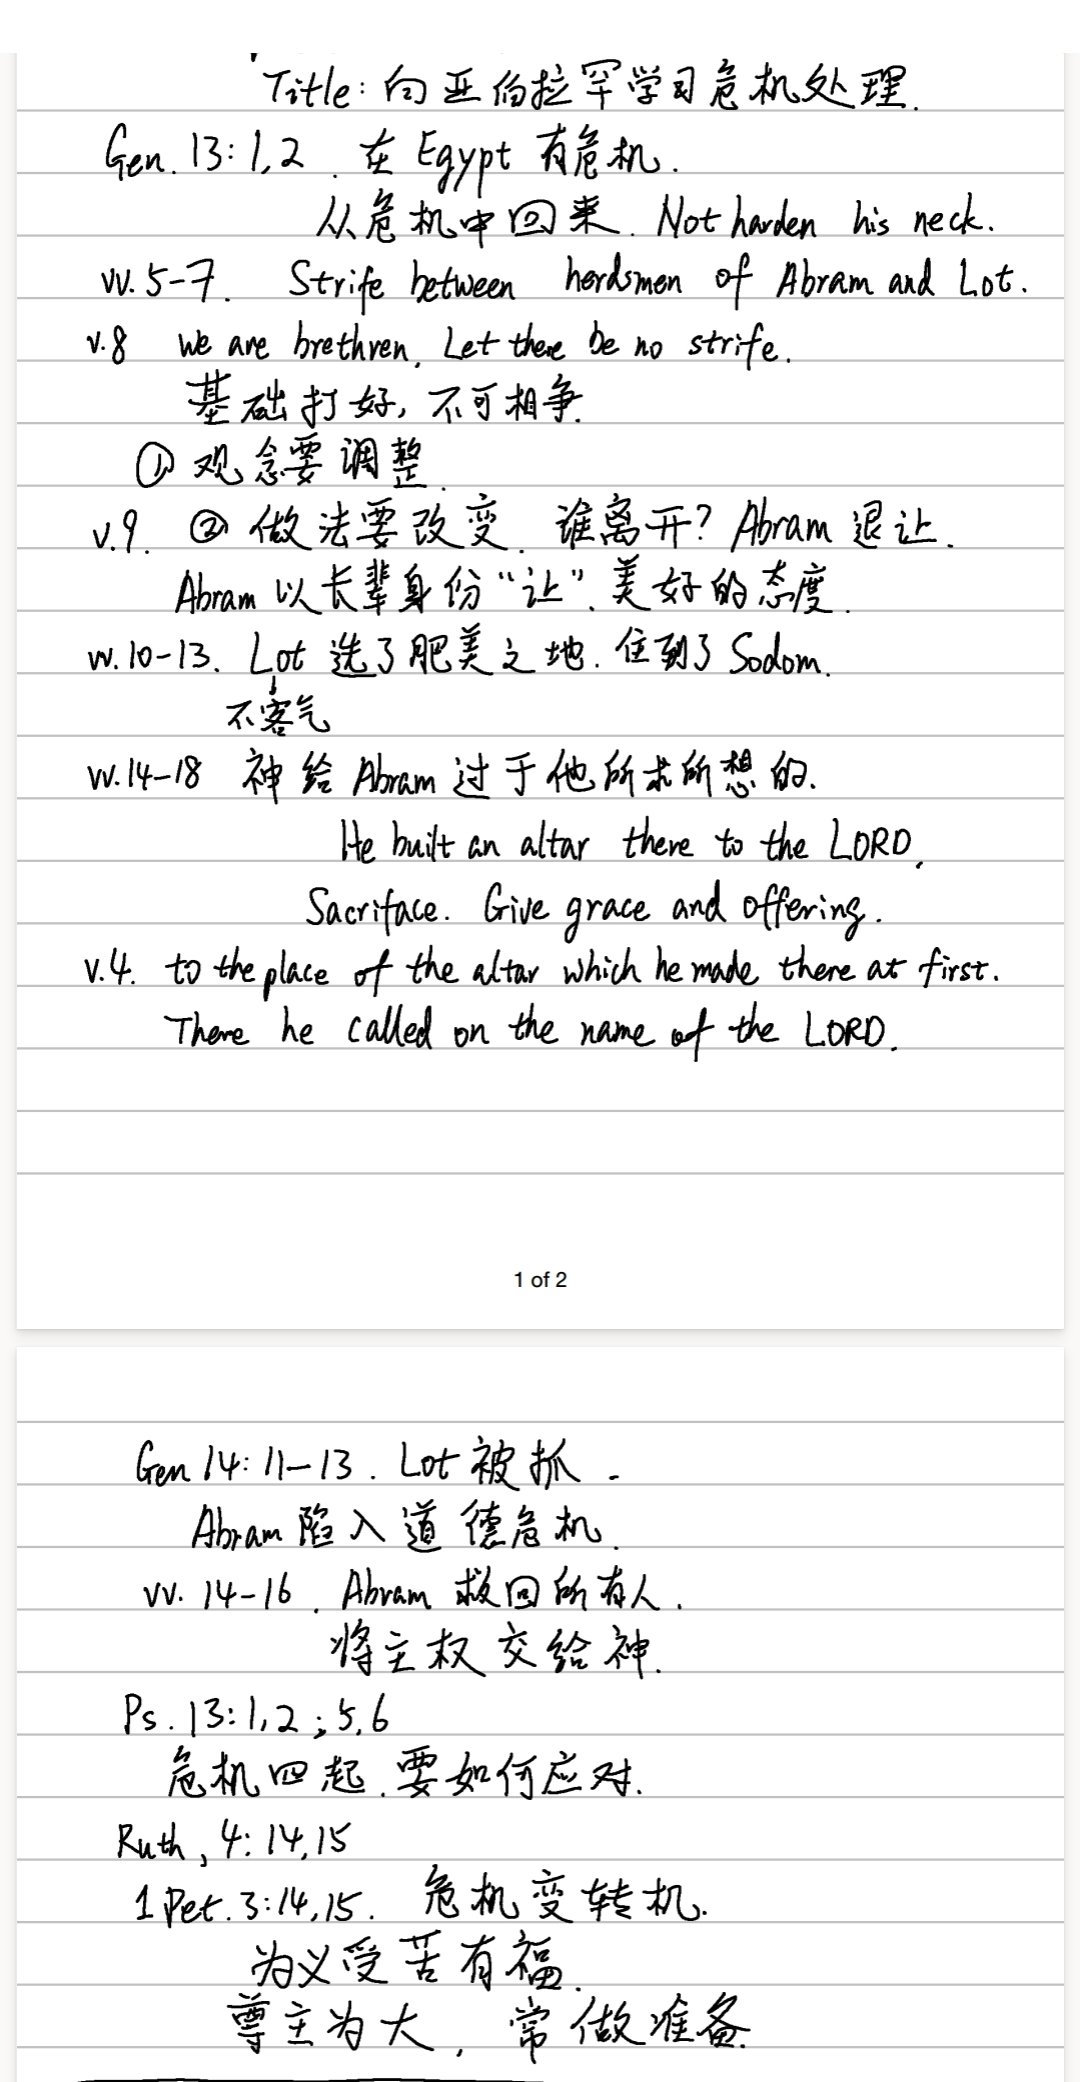 Title: 向亚伯拉罕学习危机处理.
Gen. 13:1,2. 在 Egypt 有危机.
从危机中回来. Not harden his neck.
vv. 5-7. Strife between herdsmen of Abram and Lot.
v.8 we are brethren. Let there be no strife.
基础打好, 不可相争.
① 观念要调整.
v.9. ② 做法要改变. 谁离开? Abram 退让.
Abram 以长辈身份“让”. 美好的态度.
vv. 10-13. Lot 选了肥美之地. 住到了 Sodom.
不客气
vv. 14-18 神给 Abram 过于他所求所想的.
He built an altar there to the LORD.
Sacriface. Give grace and offering.
v.4. to the place of the altar which he made there at first.
There he called on the name of the LORD.
1 of 2
Gen 14: 11-13. Lot 被抓.
Abram 陷入道德危机.
vv. 14-16. Abram 救回所有人.
将主权交给神.
Ps. 13:1,2; 5,6
危机四起. 要如何应对.
Ruth, 4: 14,15
1 Pet. 3:14,15. 危机变转机.
为义受苦有福.
尊主为大, 常做准备.